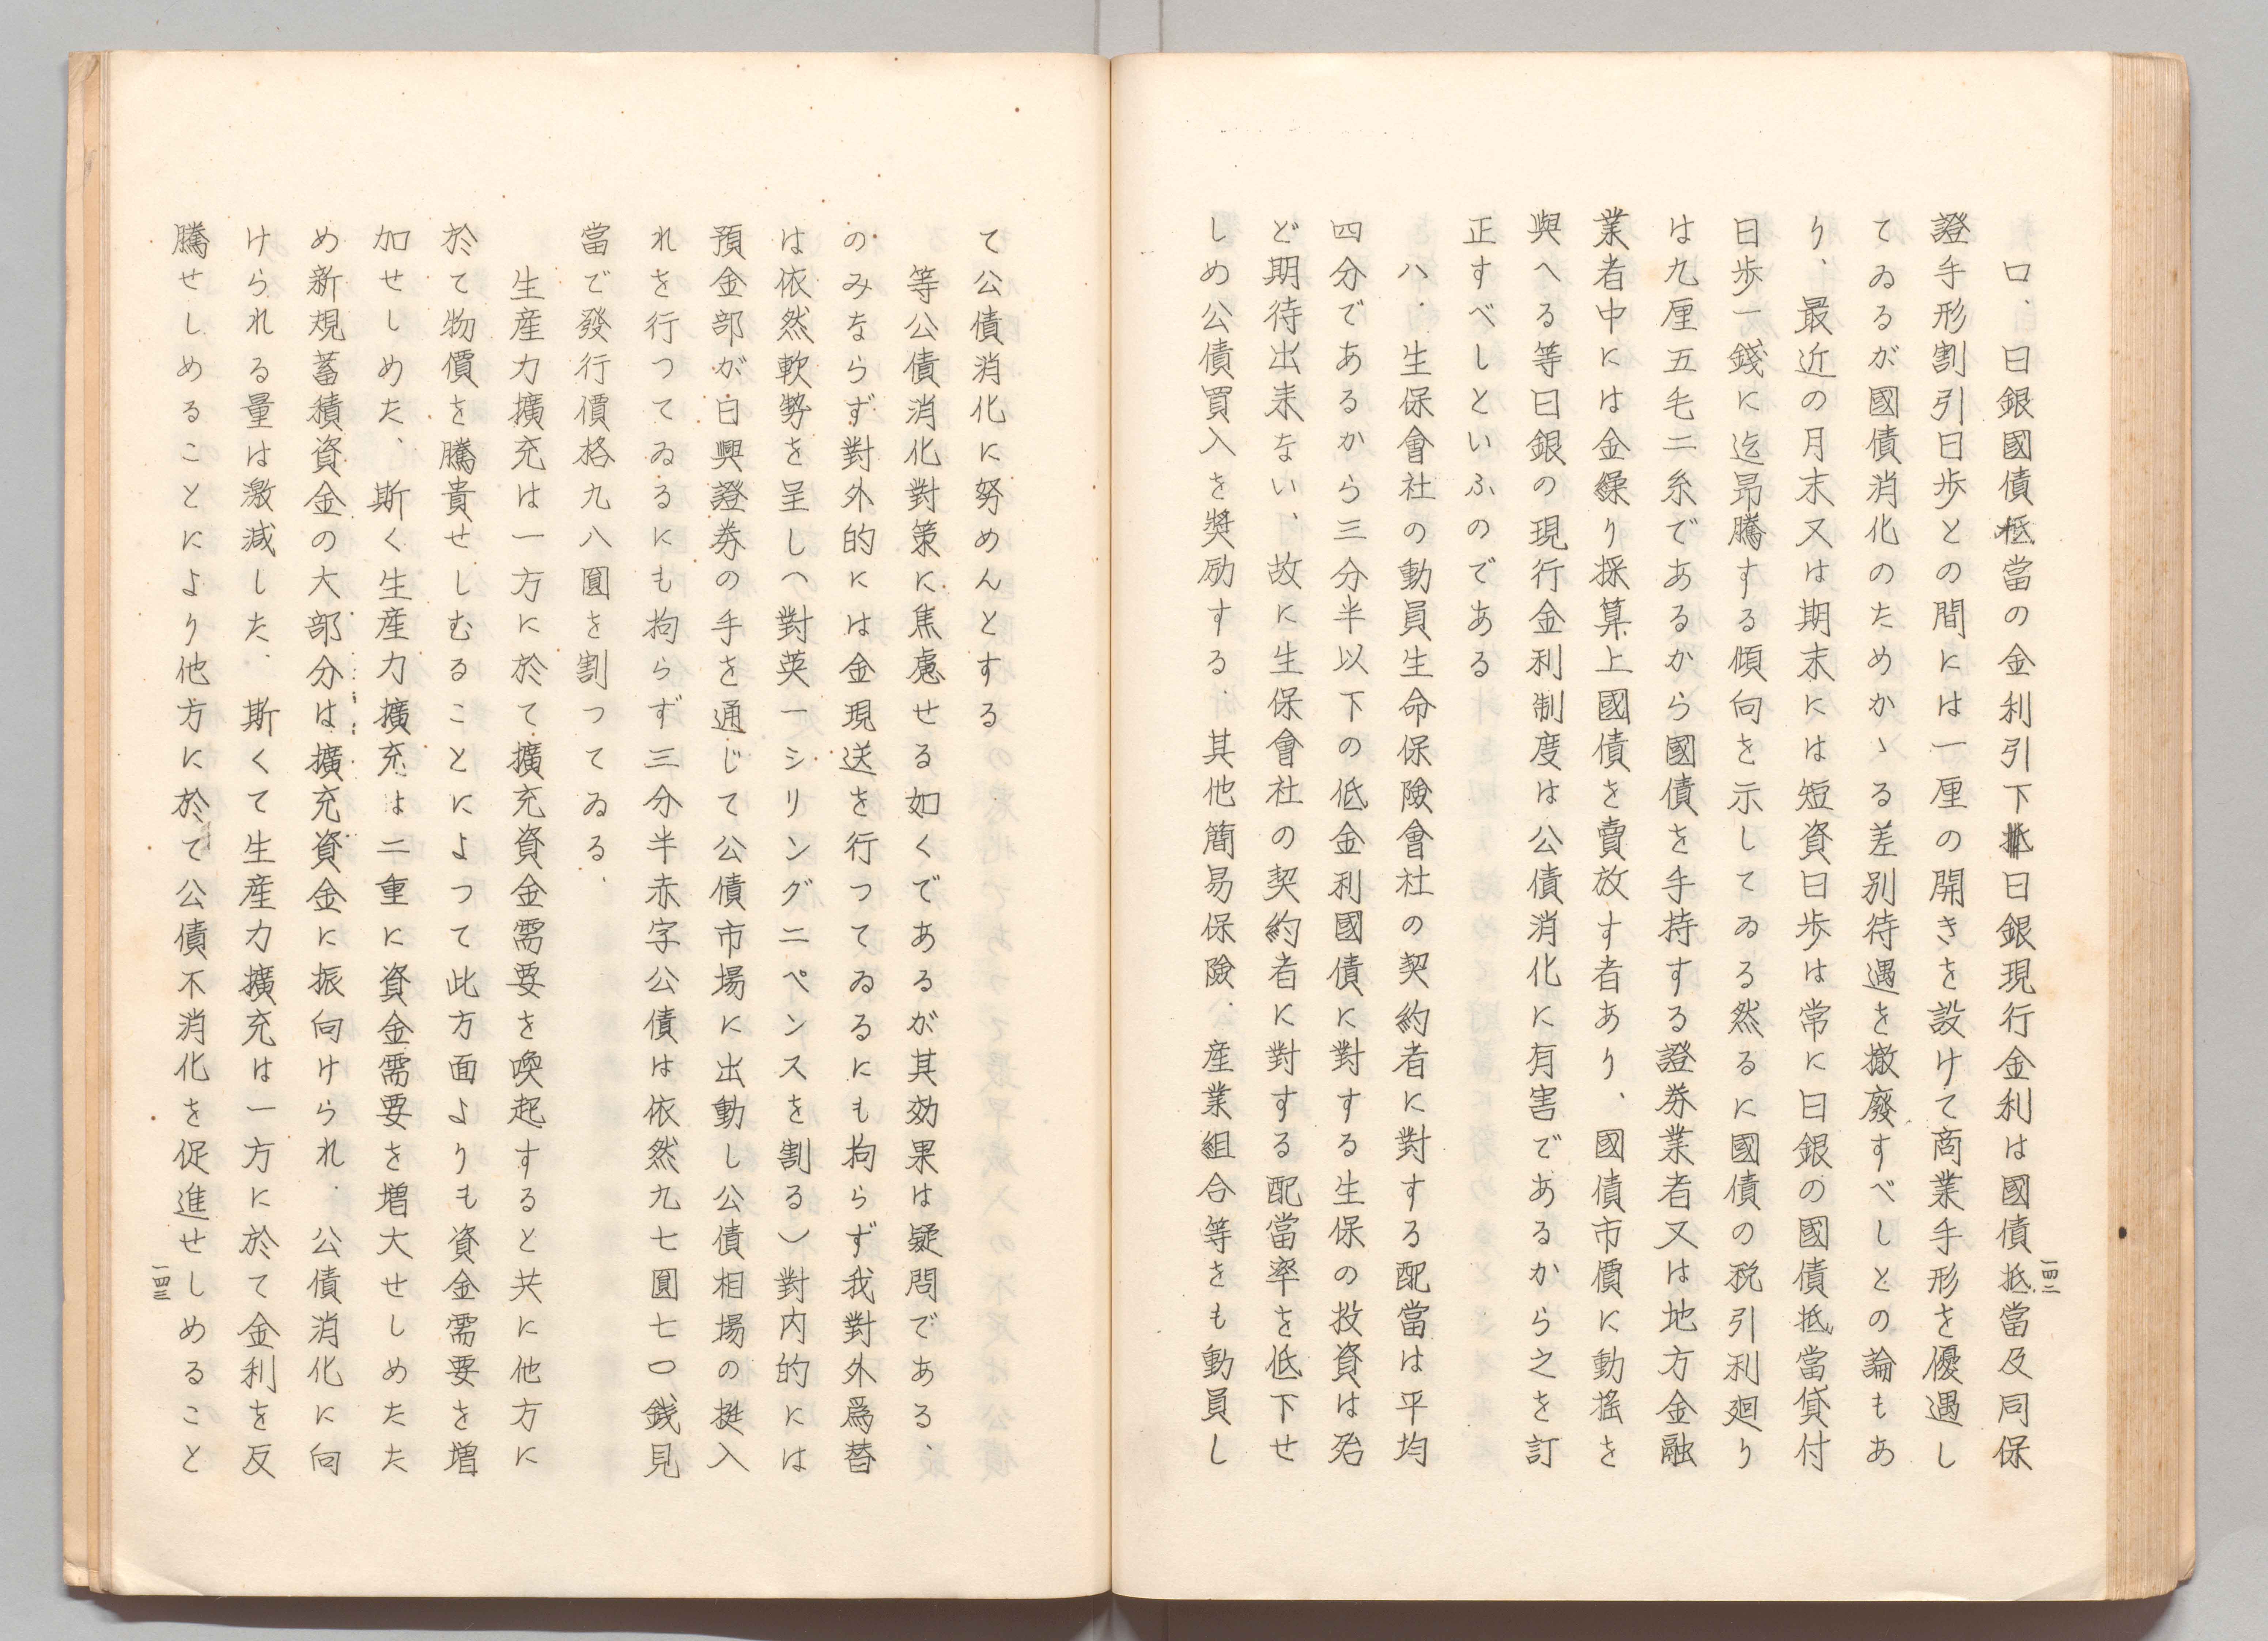 ロ、日銀國債抵當の金利引下 日銀現行金利は國債抵當及同保
證手形割引日歩との間には一厘の開きを設けて商業手形を優遇し
てゐるが國債消化のためかゝる差別待遇を撤廢すべしとの論もあ
り、最近の月末又は期末には短資日歩は常に日銀の國債抵當貸付
日歩一錢に迄昂騰する傾向を示してゐる然るに國債の税引利廻り
は九厘五毛二糸であるから國債を手持する證券業者又は地方金融
業者中には金繰り採算上國債を賣放す者あり、國債市價に動搖を
與へる等日銀の現行金利制度は公債消化に有害であるから之を訂
正すべしといふのである
ハ、生保會社の動員生命保險會社の契約者に對する配當は平均
四分であるから三分半以下の低金利國債に對する生保の投資は殆
ど期待出来ない、故に生保會社の契約者に對する配當率を低下せ
しめ公債買入を奬励する、其他簡易保險、産業組合等をも動員し
一四二
て公債消化に努めんとする
等公債消化對策に焦慮せる如くであるが其効果は疑問である、
のみならず對外的には金現送を行つてゐるにも拘らず我對外爲替
は依然軟勢を呈し（對英一シリング二ペンスを割る）對内的には
預金部が日興證券の手を通じて公債市場に出動し公債相場の挺入
れを行つてゐるにも拘らず三分半赤字公債は依然九七圓七〇銭見
當で發行價格九八圓を割つてゐる、
生産力擴充は一方に於て擴充資金需要を喚起すると共に他方に
於て物價を騰貴せしむることによつて此方面よりも資金需要を増
加せしめた、斯く生産力擴充は二重に資金需要を増大せしめたた
め新規蓄積資金の大部分は擴充資金に振向けられ、公債消化に向
けられる量は激減した、斯くて生産力擴充は一方に於て金利を反
騰せしめることにより他方に於て公債不消化を促進せしめること
一四三